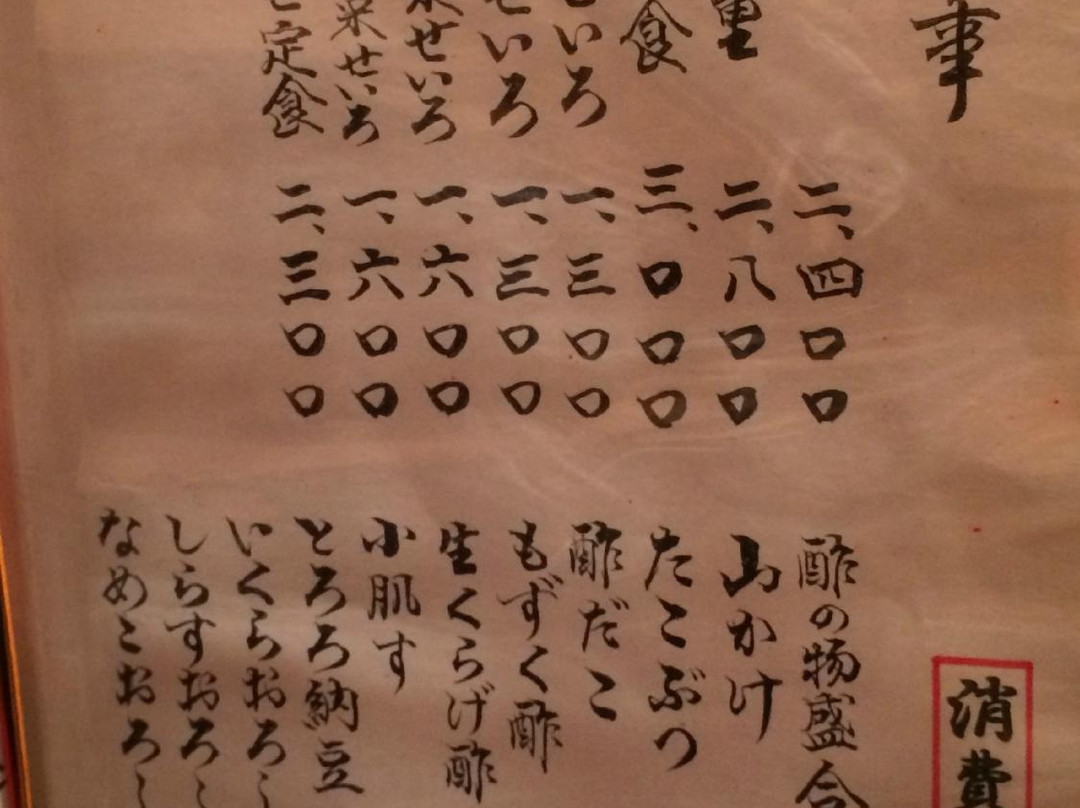 事
二、四〇〇
二、八〇〇
食 三、〇〇〇
いろ 一、三〇〇
せいろ 一、三〇〇
せいろ 一、六〇〇
菜せいろ 一、六〇〇
定食 二、三〇〇
消費
酢の物盛合
山かけ
たこぶつ
酢だこ
もずく酢
生くらげ酢
小肌す
とろろ納豆
いくらおろし
しらすおろし
なめこおろし